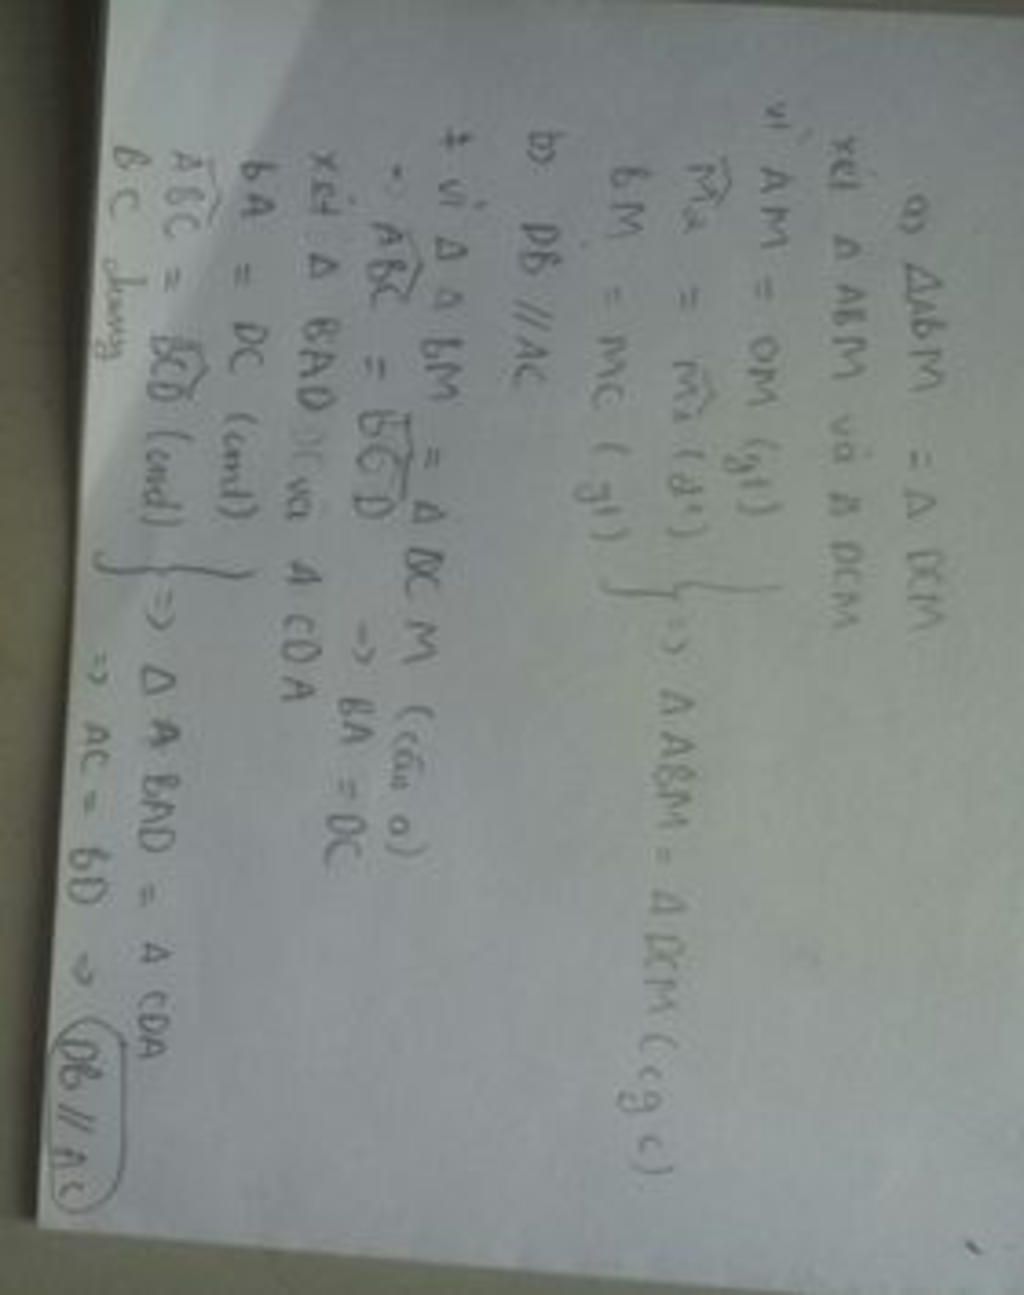 a) ΔABM = Δ DCM
xét Δ ABM và Δ DCM
vì AM = DM (gt)
M̂₂ = M̂₁ (đ²) } => Δ ABM = Δ DCM (cgc)
BM = MC (gt)
b) DB // AC
+ vì Δ ABM = Δ DCM (câu a)
ABC = BCD -> BA = DC
xét Δ BAD và Δ CDA
BA = DC (cmt)
ABC = BCD (cmt) } => Δ BAD = Δ CDA
BC chung => AC = BD => DB // AC